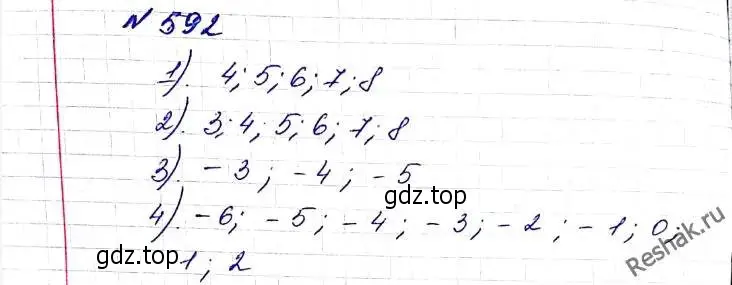 № 592
1). 4; 5; 6; 7; 8
2). 3; 4; 5; 6; 7; 8
3). -3; -4; -5
gdz.top
4). -6; -5; -4; -3; -2; -1; 0;
gdz.top
1; 2
Reshak.ru